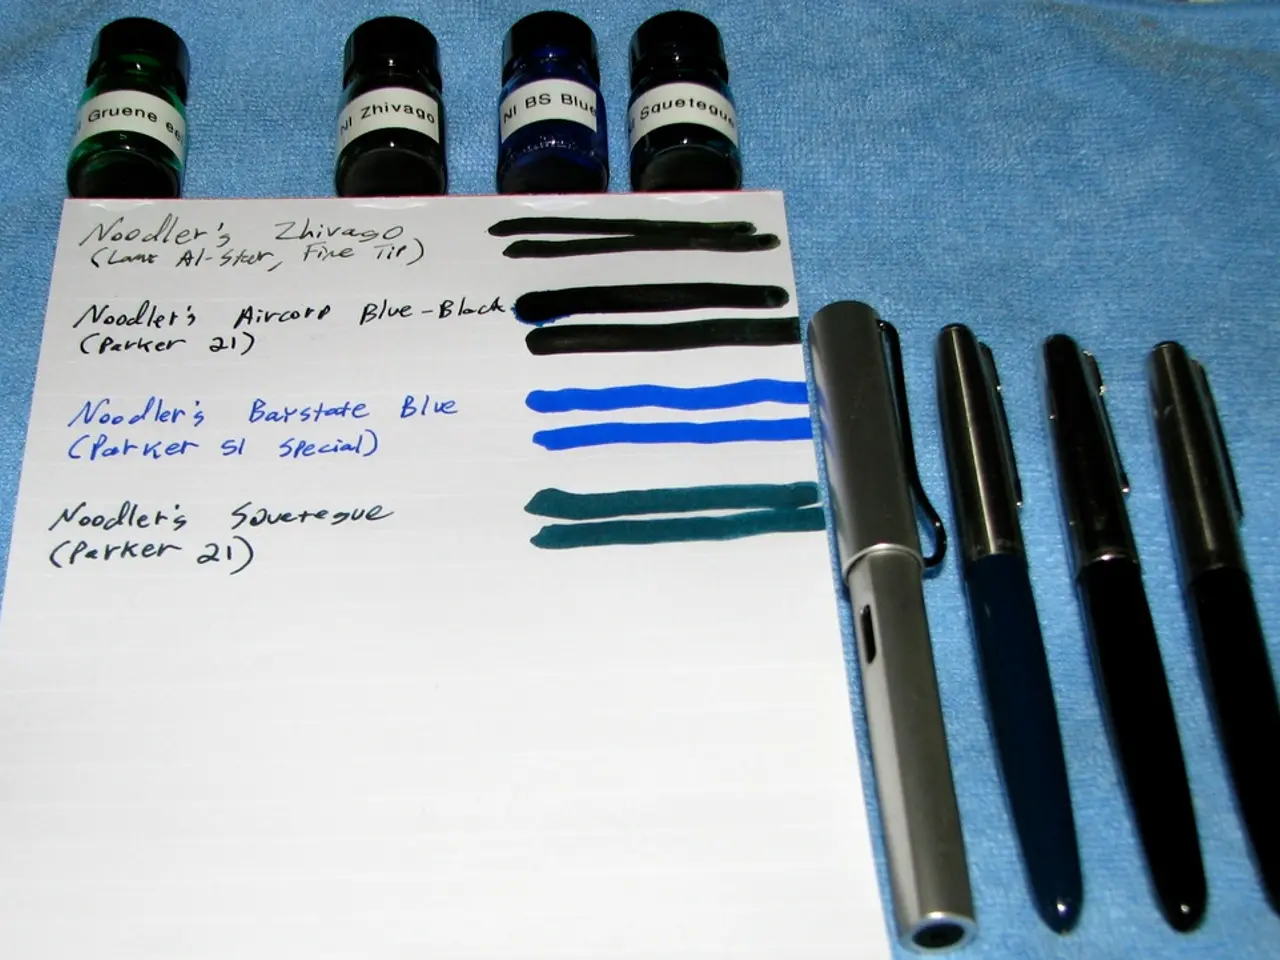 Gruene
NI Zhivago
NI BS Blue
Squetegue
Noodler's Zhivago
(Lamy Al-Star, Fine Tip)
Noodler's Aircorp Blue-Black
(Parker 21)
Noodler's Baystate Blue
(Parker 51 Special)
Noodler's Squetegue
(Parker 21)